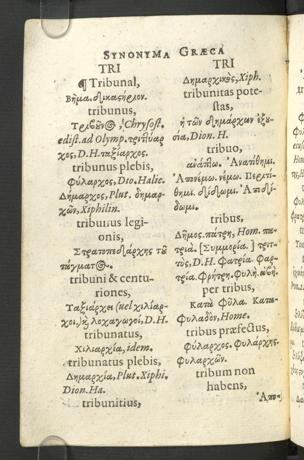 SYNONYMA GRÆCA
TRI
¶ Tribunal,
Βῆμα. δικαςήριον.
tribunus,
Chrysost.
edist. ad Olymp.
χος, D.H. ταξίαρχος.
tribunus plebis,
φύλαρχος, Dio. Halic.
Δήμαρχος, Plut. δημαρ-
χῶν, Xiphilin.
tribunus legi-
onis,
Στρατοπεδάρχης τῦ
τάγματος.
tribuni & centu-
riones,
Ταξίαρχοι (uel χιλίαρ-
χοι,) κ̀ λοχαγωγοὶ, D.H.
tribunatus,
Χιλιαρχία, idem.
tribunatus plebis,
Δημαρχία, Plut. Xiphi.
Dion. Ha.
tribunitius,
TRI
Δημαρχικὸς, Xiph.
tribunitas pote-
stas,
ἡ τῶν δημάρχων ἐξυ-
σία, Dion. H.
tribuo,
ἀνάπτω. Ἀνατίθημι.
Ἀπονέμω. νέμω. Περιτί-
θημι. δίδωμι. Ἀποδί-
δωμι.
tribus,
Δῆμος. πάτρη, Hom. πα-
τριά. [Συμμορία.] τριτ-
τὺς, D.H. Φατρία. Φαρ-
τρία. Φρήτρη. Φυλὴ.
per tribus,
Κατὰ φῦλα. Κατα-
φυλαδὸν, Home.
tribus præfectus,
Φύλαρχος. Φυλάρχης.
φυλαρχῶν.
tribum non
habens,